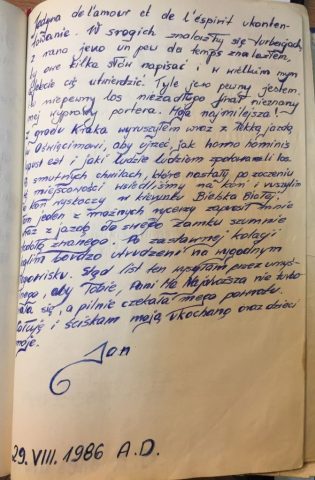 Jedyna de l'amour et de l'éspirit ukonten-
towanie. W srogich znalazłszy się turbacjach,
z rana jeno un peu de temps znalazłem,
by owe kilka słów napisać i w wielkim mym
afekcie cię utwierdzić. Tyle jeno pewny jestem.
niepewny los niezadługo finał nieznany
mej wyprawy poniera. Moja najmilejsza!
z grodu Kraka wyruszyłem wraz z Tekdą jazdą
Oświęcimowi, aby ujzeć, jak homo hominis
est i jaki ludzie ludziom zgotowali los.
smutnych chwilach, które nastały po zoczeniu
miejscowości wsiedliśmy na koń i ruszyliśmy
koń wyskoczy w kierunku Bielska Białej,
ten jeden z możnych rycerzy zaprosił mnie
wraz z jazdą do swego zamku szumnie
znanego. Po zastawnej kolacji
bardzo utrudzeni na wygodnym
Stąd list ten wysyłam przez umyśl-
nego, aby Tobie, Pani Ma Najdroższa nie turbo-
wała się, a pilnie czekała mego powrotu.
Całuję i ściskam moją ukochaną oraz dzieci
moje.
Jan
29. VIII. 1986 A.D.